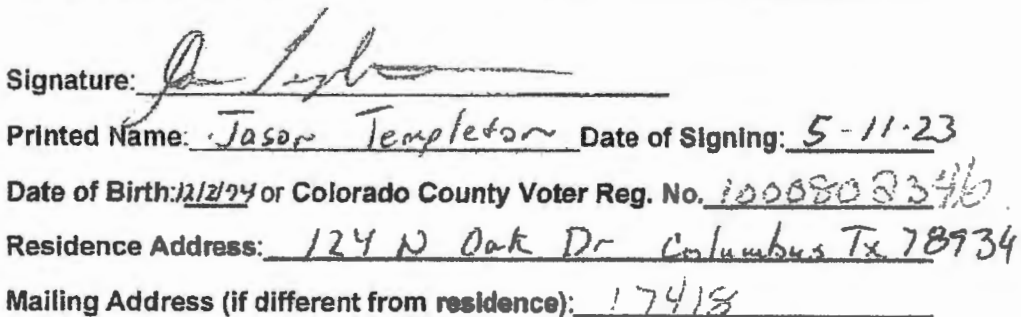 Signature:
Printed Name: Jason Templeton Date of Signing: 5-11-23
Date of Birth: 12/2/74 or Colorado County Voter Reg. No. 1000802346
Residence Address: 124 N Oak Dr Columbus Tx 78934
Mailing Address (if different from residence): 17418